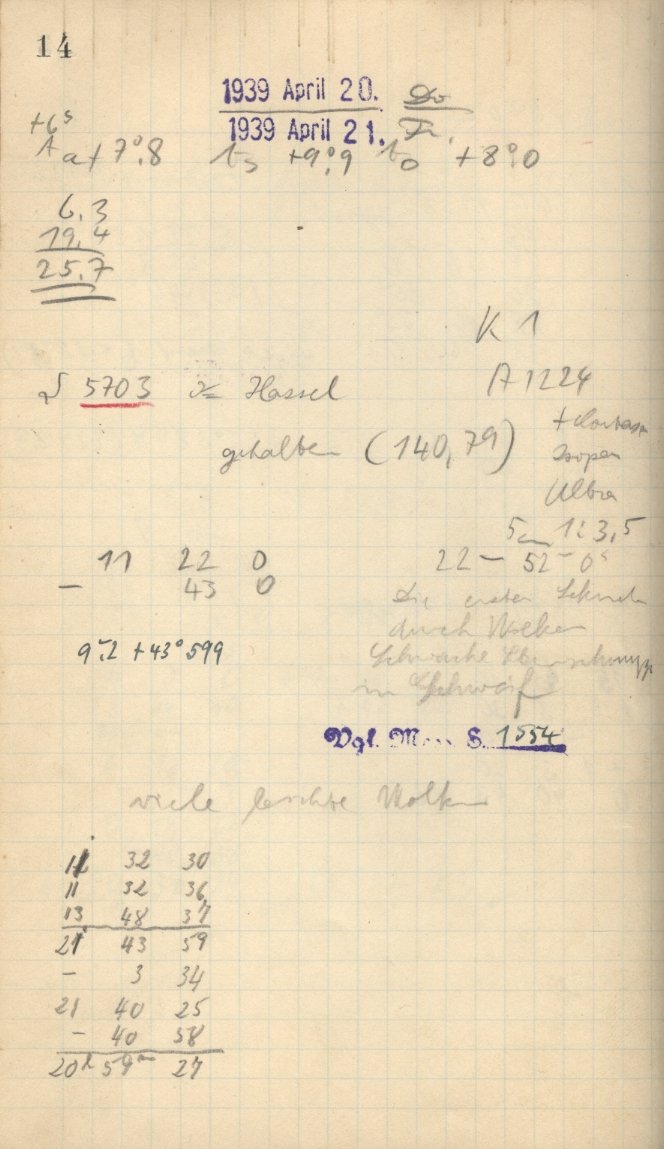 14
1939 April 20. Do
1939 April 21. Fr.
+6s
+7°.8 +9°.9 +8°.0
6.3
19.4
25.7
K 1
A 1224
5703 Hassel
gehalten (140,79)
Isopan
Ultra
1:3,5
11 22 0
22 52 0s
— 43 0
Die ersten
durch Wolken
9.2 +43°599
Schwache
im Schweif
Vgl. S. 1554
viele leichte Wolken
11 32 30
11 32 36
13 48 37
21 43 59
— 3 34
21 40 25
— 40 58
20h 59m 27